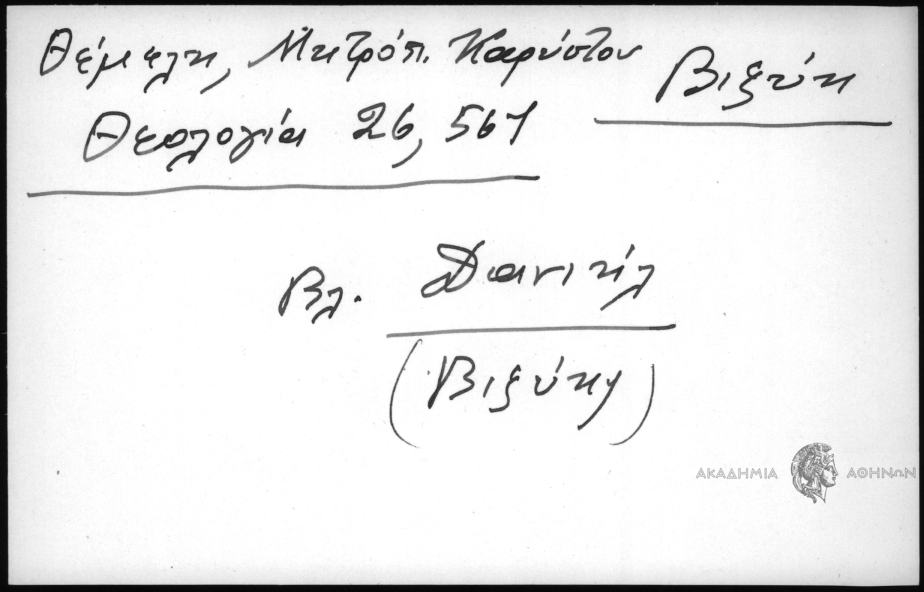 Θέμελη, Μητρόπ. Καρύστου
Βιζύη
Θεολογία 26, 561
Βλ. Δανιήλ
(Βιζύης)
ΑΚΑΔΗΜΙΑ ΑΘΗΝΩΝ